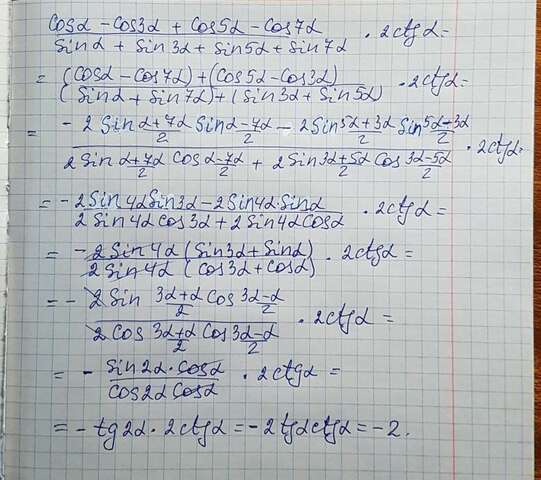 cosα - cos3α + cos5α - cos7α / sinα + sin3α + sin5α + sin7α · 2ctgα =
= (cosα - cos7α) + (cos5α - cos3α) / (sinα + sin7α) + (sin3α + sin5α) · 2ctgα =
= -2 sin α+7α/2 sin α-7α/2 - 2 sin 5α+3α/2 sin 5α-3α/2 / 2 sin α+7α/2 cos α-7α/2 + 2 sin 3α+5α/2 cos 3α-5α/2 · 2ctgα =
= -2 sin4α sin3α - 2 sin4α · sinα / 2 sin4α cos3α + 2 sin4α cosα · 2ctgα =
= - 2 sin4α (sin3α + sinα) / 2 sin4α (cos3α + cosα) · 2ctgα =
= - 2 sin 3α+α/2 cos 3α-α/2 / 2 cos 3α+α/2 cos 3α-α/2 · 2ctgα =
= - sin2α · cosα / cos2α cosα · 2ctgα =
= - tg2α · 2ctgα = -2tgαctgα = -2.